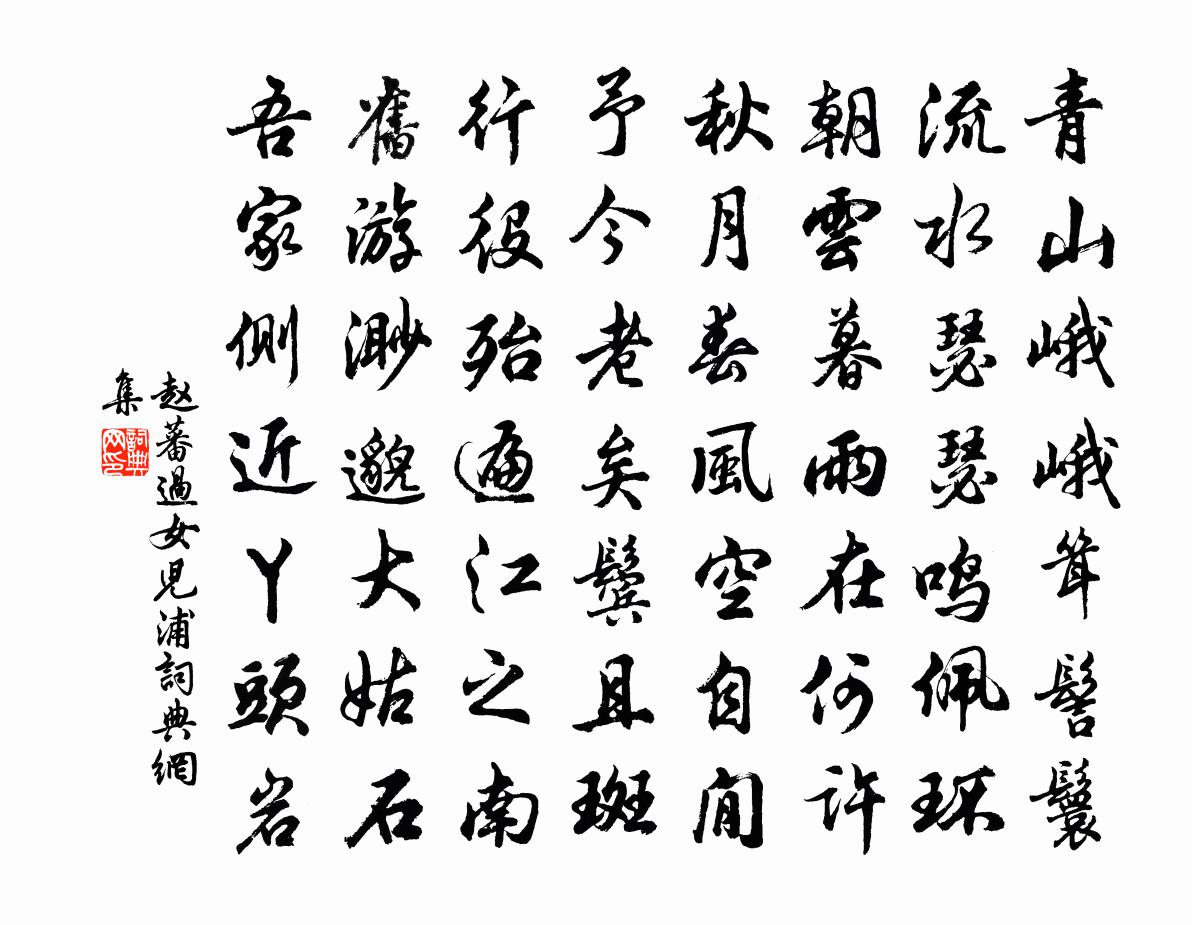 青山峨峨耸髻鬟
流水瑟瑟鸣佩环
朝雲暮雨在何許
秋月春風空自閒
予今老矣鬓且斑
行役殆遍江之南
舊游渺邈大姑石
吾家側近丫頭岩
赵蕃過女児浦詞典網
集
詞典网印